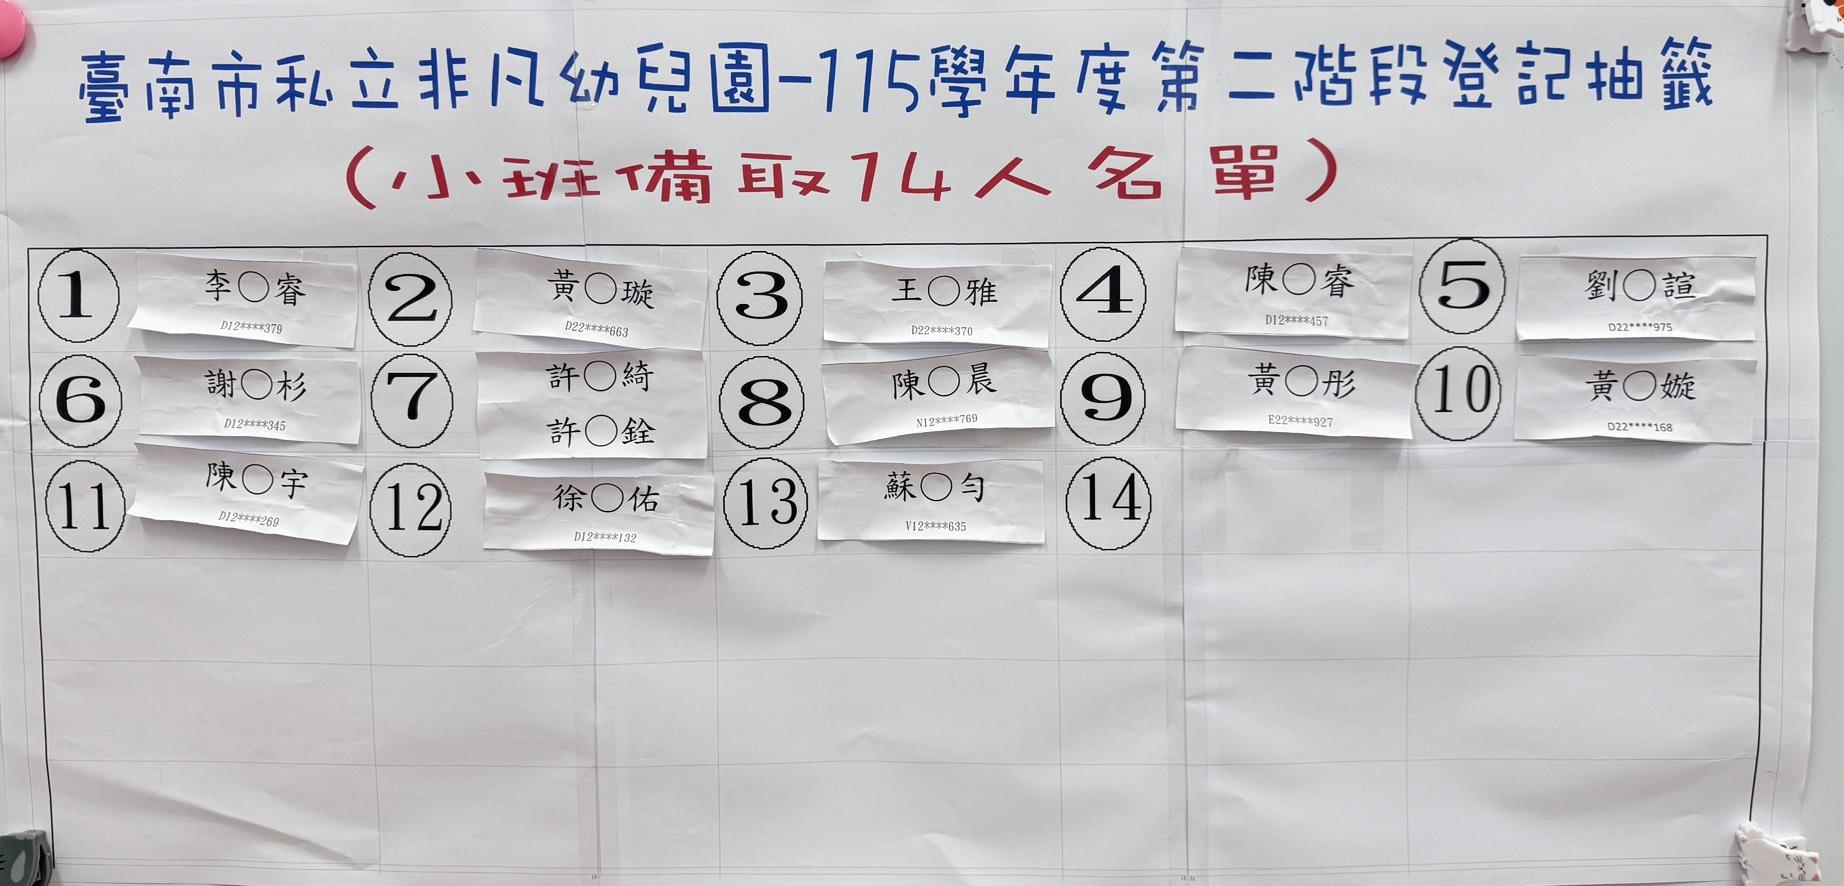 臺南市私立非凡幼兒園-115學年度第二階段登記抽籤
(小班備取14人名單)
1 李○睿 D12****379
2 黃○璇 D22****663
3 王○雅 D22****370
4 陳○睿 D12****457
5 劉○諠 D22****975
6 謝○杉 D12****345
7 許○綺 許○銓
8 陳○晨 N12****769
9 黃○彤 E22****927
10 黃○嫙 D22****168
11 陳○宇 D12****269
12 徐○佑 D12****132
13 蘇○勻 V12****635
14